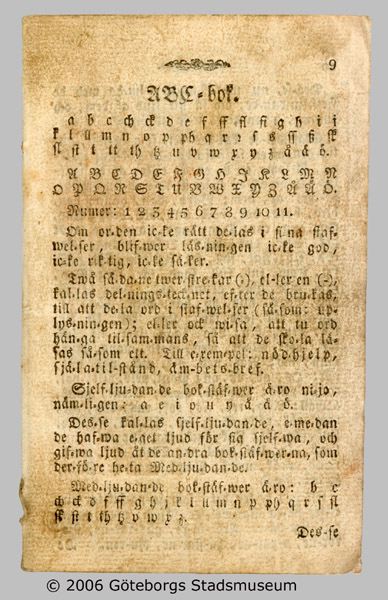 9
ABC-bok.
a b c ch ck d e f ff fl ſi g h i j
k l ll m n o p ph q r s ſ ſſ ß ſk
ſl ſt t tt th tz u v w x y z å ä ö.
A B C D E F G H I J K L M N
O P Q R S T U B W X Y Z Å Ä Ö.
Numer: 1 2 3 4 5 6 7 8 9 10 11.
Om or-den ic-ke rätt de-las i ſi-na ſtaf-
wel-ſer, blif-wer läs-nin-gen ic-ke god,
ic-ke rik-tig, ic-ke ſä-ker.
Twå ſå-da-ne twer-ſtre-kar (⸗), el-ler en (-),
kal-las del-nings-tec-net, ef-ter de bru-kas,
till att de-la ord i ſtaf-wel-ſer (ſå-ſom: up-
lys-nin-gen); el-ler ock wi-ſa, att tu ord
hän-ga til-ſam-mans, ſå att de ſko-la lä-
ſas ſå-ſom ett. Till e-xem-pel: nöd-hjelp,
ſjä-la-til-ſtånd, äm-bets-bref.
Sjelf-lju-dan-de bok-ſtäf-wer ä-ro ni-jo,
näm-li-gen: a e i o u y å ä ö.
Des-ſe kal-las ſjelf-lju-dan-de, e-me-dan
de haf-wa e-get ljud för ſig ſjelf-wa, och
gif-wa ljud åt de an-dra bok-ſtäf-wer-na, ſom
der-fö-re he-ta Med-lju-dan-de.
Med-lju-dan-de bok-ſtäf-wer ä-ro: b c
ch ck d f ff g h j k l ll m n p ph q r s ſl
ſk ſt t th tz v w x z.
Des-ſe
© 2006 Göteborgs Stadsmuseum